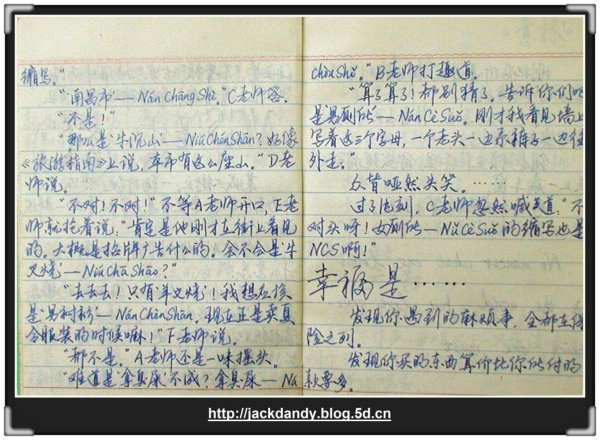 缩写。"
"南昌市'—Nán Chāng Shì。"C老师答。
"不是!"
"那么是'牛沉山'—Niú Chén Shān? 好像
《旅游指南》上说,本市有这么座山。"D老
师说。
"不对!不对!"不等A老师开口,E老
师就抢着说:"肯定是他刚才在街上看见
的。大概是招牌广告什么的。会不会是'牛
叉烧'—Niú Chā Shāo?"
"去去去!只有'羊叉烧'!我想应该
是'男衬衫'—Nán Chèn Shān,现在正是卖夏
令服装的时候嘛!"F老师说。
"都不是。"A老师还是一味摇头。
"难道是'拿臭屎'不成?拿臭屎—Ná
chòu Shǐ。"B老师打趣道。
"算了算了!都别猜了。告诉你们吧
是男厕所—Nán Cè Suǒ。刚才我看见墙上
写着这三个字母,一个老头一边系裤子一边往
外走。
众皆哑然失笑。……
过了片刻,C老师忽然喊道:"不
对头呀!女厕所—Nǚ Cè Suǒ的缩写也是
NCS啊!"
幸福是……
发现你遇到的麻烦事,全部在保
险之列。
发现你买的东西算价比你所付的
款要多。
http://jackdandy.blog.5d.cn